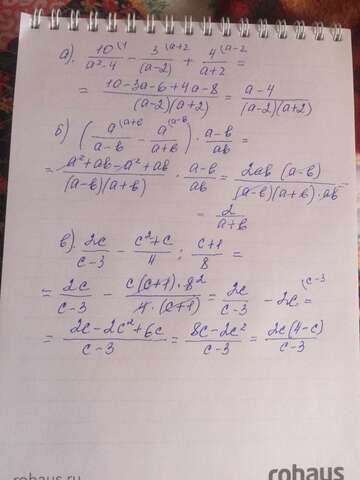 а). 10(1/(a²-4) - 3(a+2/(a-2) + 4(a-2/(a+2) =
= (10-3a-6+4a-8)/((a-2)(a+2)) = (a-4)/((a-2)(a+2))
б) (a(a+в/(a-в) - a(a-в/(a+в)) · (a-в)/(aв) =
= (a²+aв-a²+aв)/((a-в)(a+в)) · (a-в)/(aв) = (2aв(a-в))/((a-в)(a+в)·aв) =
= 2/(a+в)
в). 2c/(c-3) - (c²+c)/4 : (c+1)/8 =
= 2c/(c-3) - (c(c+1)·8²)/(4·(c+1)) = 2c/(c-3) - 2c(c-3 =
= (2c-2c²+6c)/(c-3) = (8c-2c²)/(c-3) = (2c(4-c))/(c-3)
rohaus.ru
rohaus